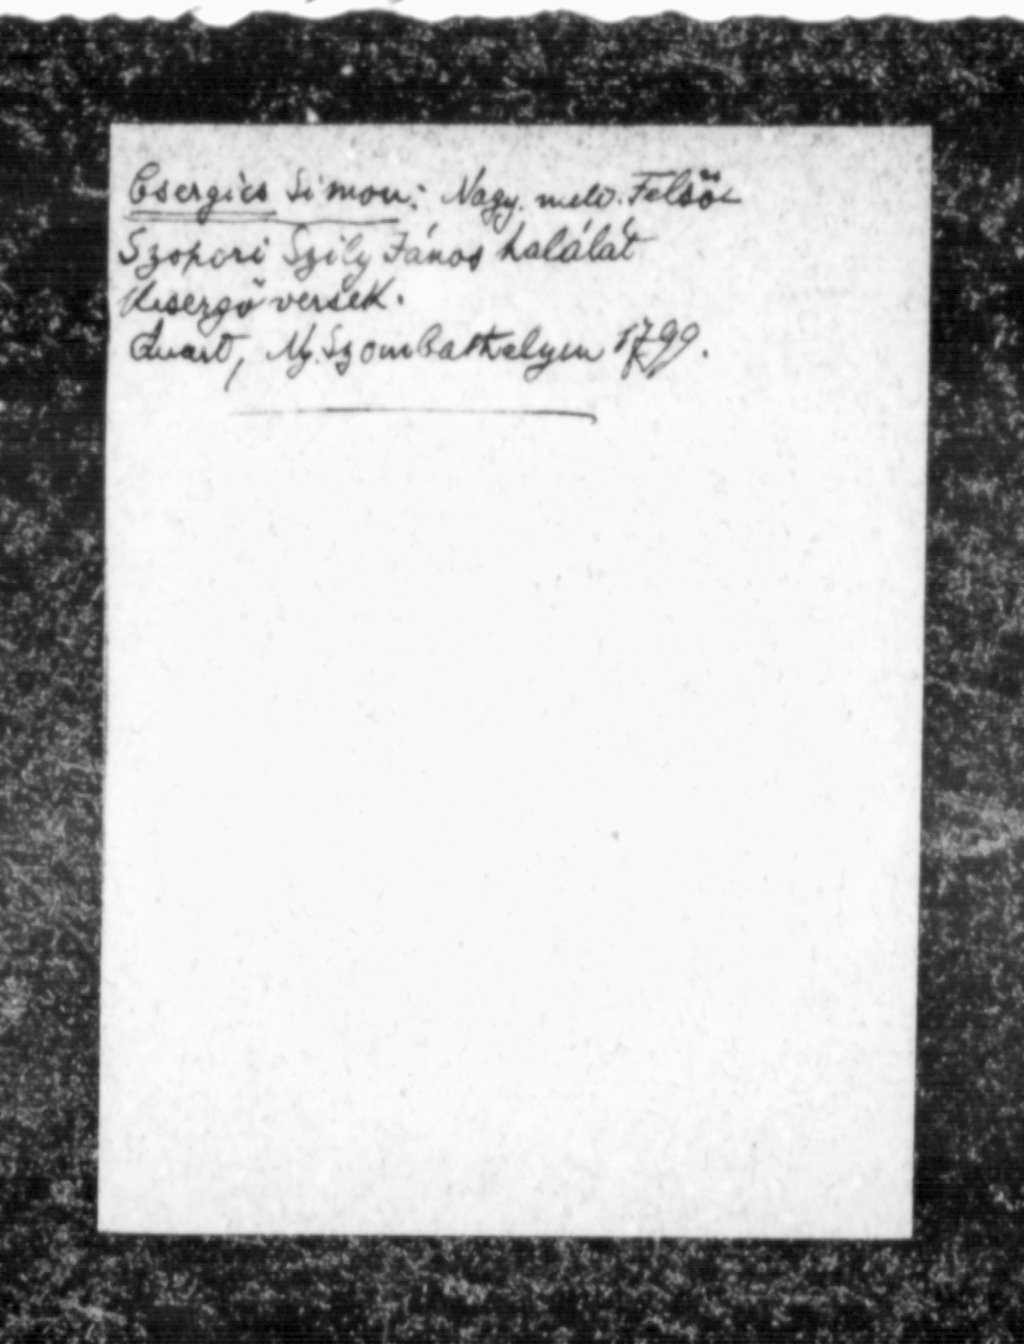 Csergics Simon: Nagy. mélt. Felső
Szopori Szily János halálát
Kesergő versek.
Quart, Ny. Szombathelyen 1799.